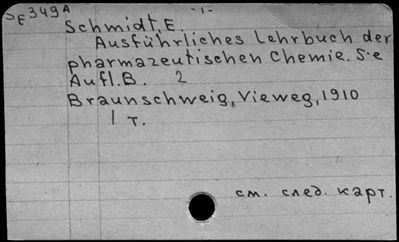 SE349A
-1-
Schmidt, E.
Ausführliches Lehrbuch der
pharmazeutischen Chemie. 5-e
Aufl. B. 2
Braunschweig, Vieweg, 1910
1 т.
см. след. карт.